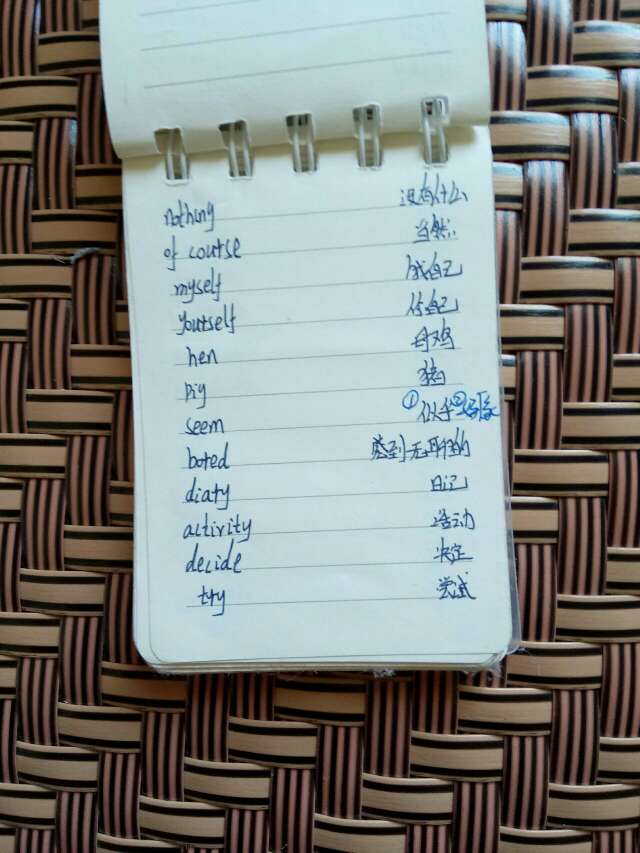 nothing 没有什么
of course 当然
myself 我自己
yourself 你自己
hen 母鸡
pig 猪
seem ①似乎②好像
bored 感到无聊的
diary 日记
activity 活动
decide 决定
try 尝试